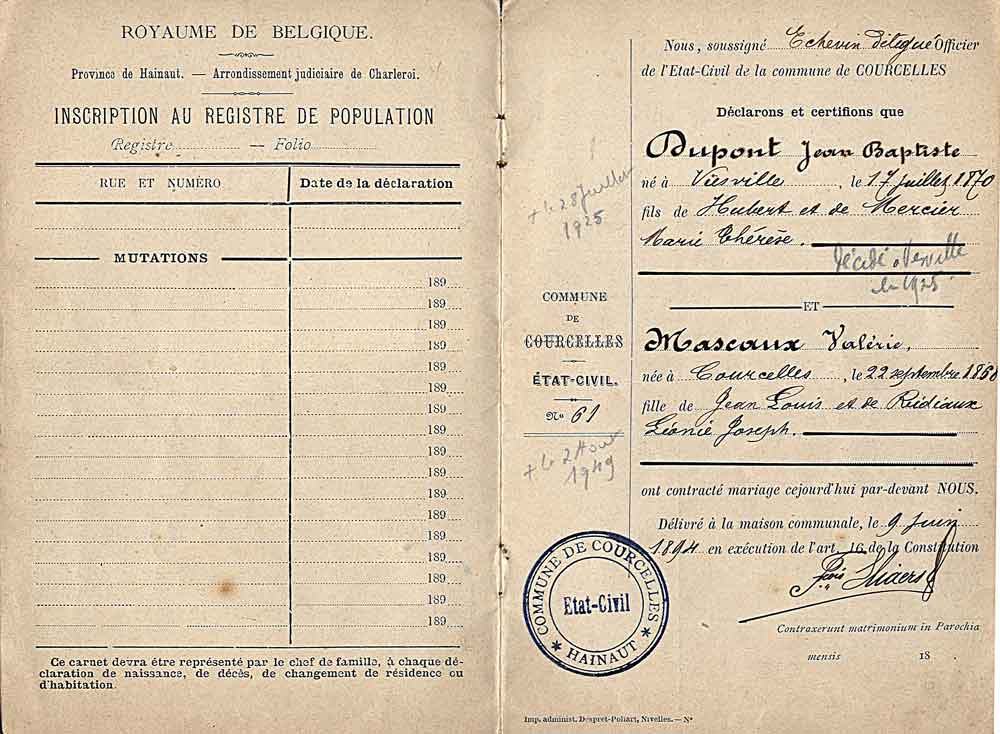 ROYAUME DE BELGIQUE.
Province de Hainaut. — Arrondissement judiciaire de Charleroi.
INSCRIPTION AU REGISTRE DE POPULATION
Registre — Folio
RUE ET NUMÉRO Date de la déclaration
MUTATIONS
189
189
189
189
189
189
189
189
189
189
189
189
189
189
189
189
189
Ce carnet devra être représenté par le chef de famille, à chaque dé-
claration de naissance, de décès, de changement de résidence ou
d'habitation.
+ le 28 Juillet
1925
COMMUNE
DE
COURCELLES
ÉTAT-CIVIL.
No 61
+ le 2 Aout
1949
COMMUNE DE COURCELLES
Etat-Civil
* HAINAUT *
Imp. administ. Despret-Poliart, Nivelles. — No
Nous, soussigné Echevin délégué Officier
de l'Etat-Civil de la commune de COURCELLES
Déclarons et certifions que
Dupont Jean Baptiste
né à Viesville, le 17 juillet 1870
fils de Hubert et de Mercier
Marie Thérèse.
Décédé à Viesville
le 1925
ET
Mascaux Valérie,
née à Courcelles, le 22 septembre
fille de Jean Louis et de
Léonie Joseph.
ont contracté mariage cejourd'hui par-devant NOUS.
Délivré à la maison communale, le 9 Juin
1894 en exécution de l'art. 16 de la Constitution
Contraxerunt matrimonium in Parochia
mensis 18